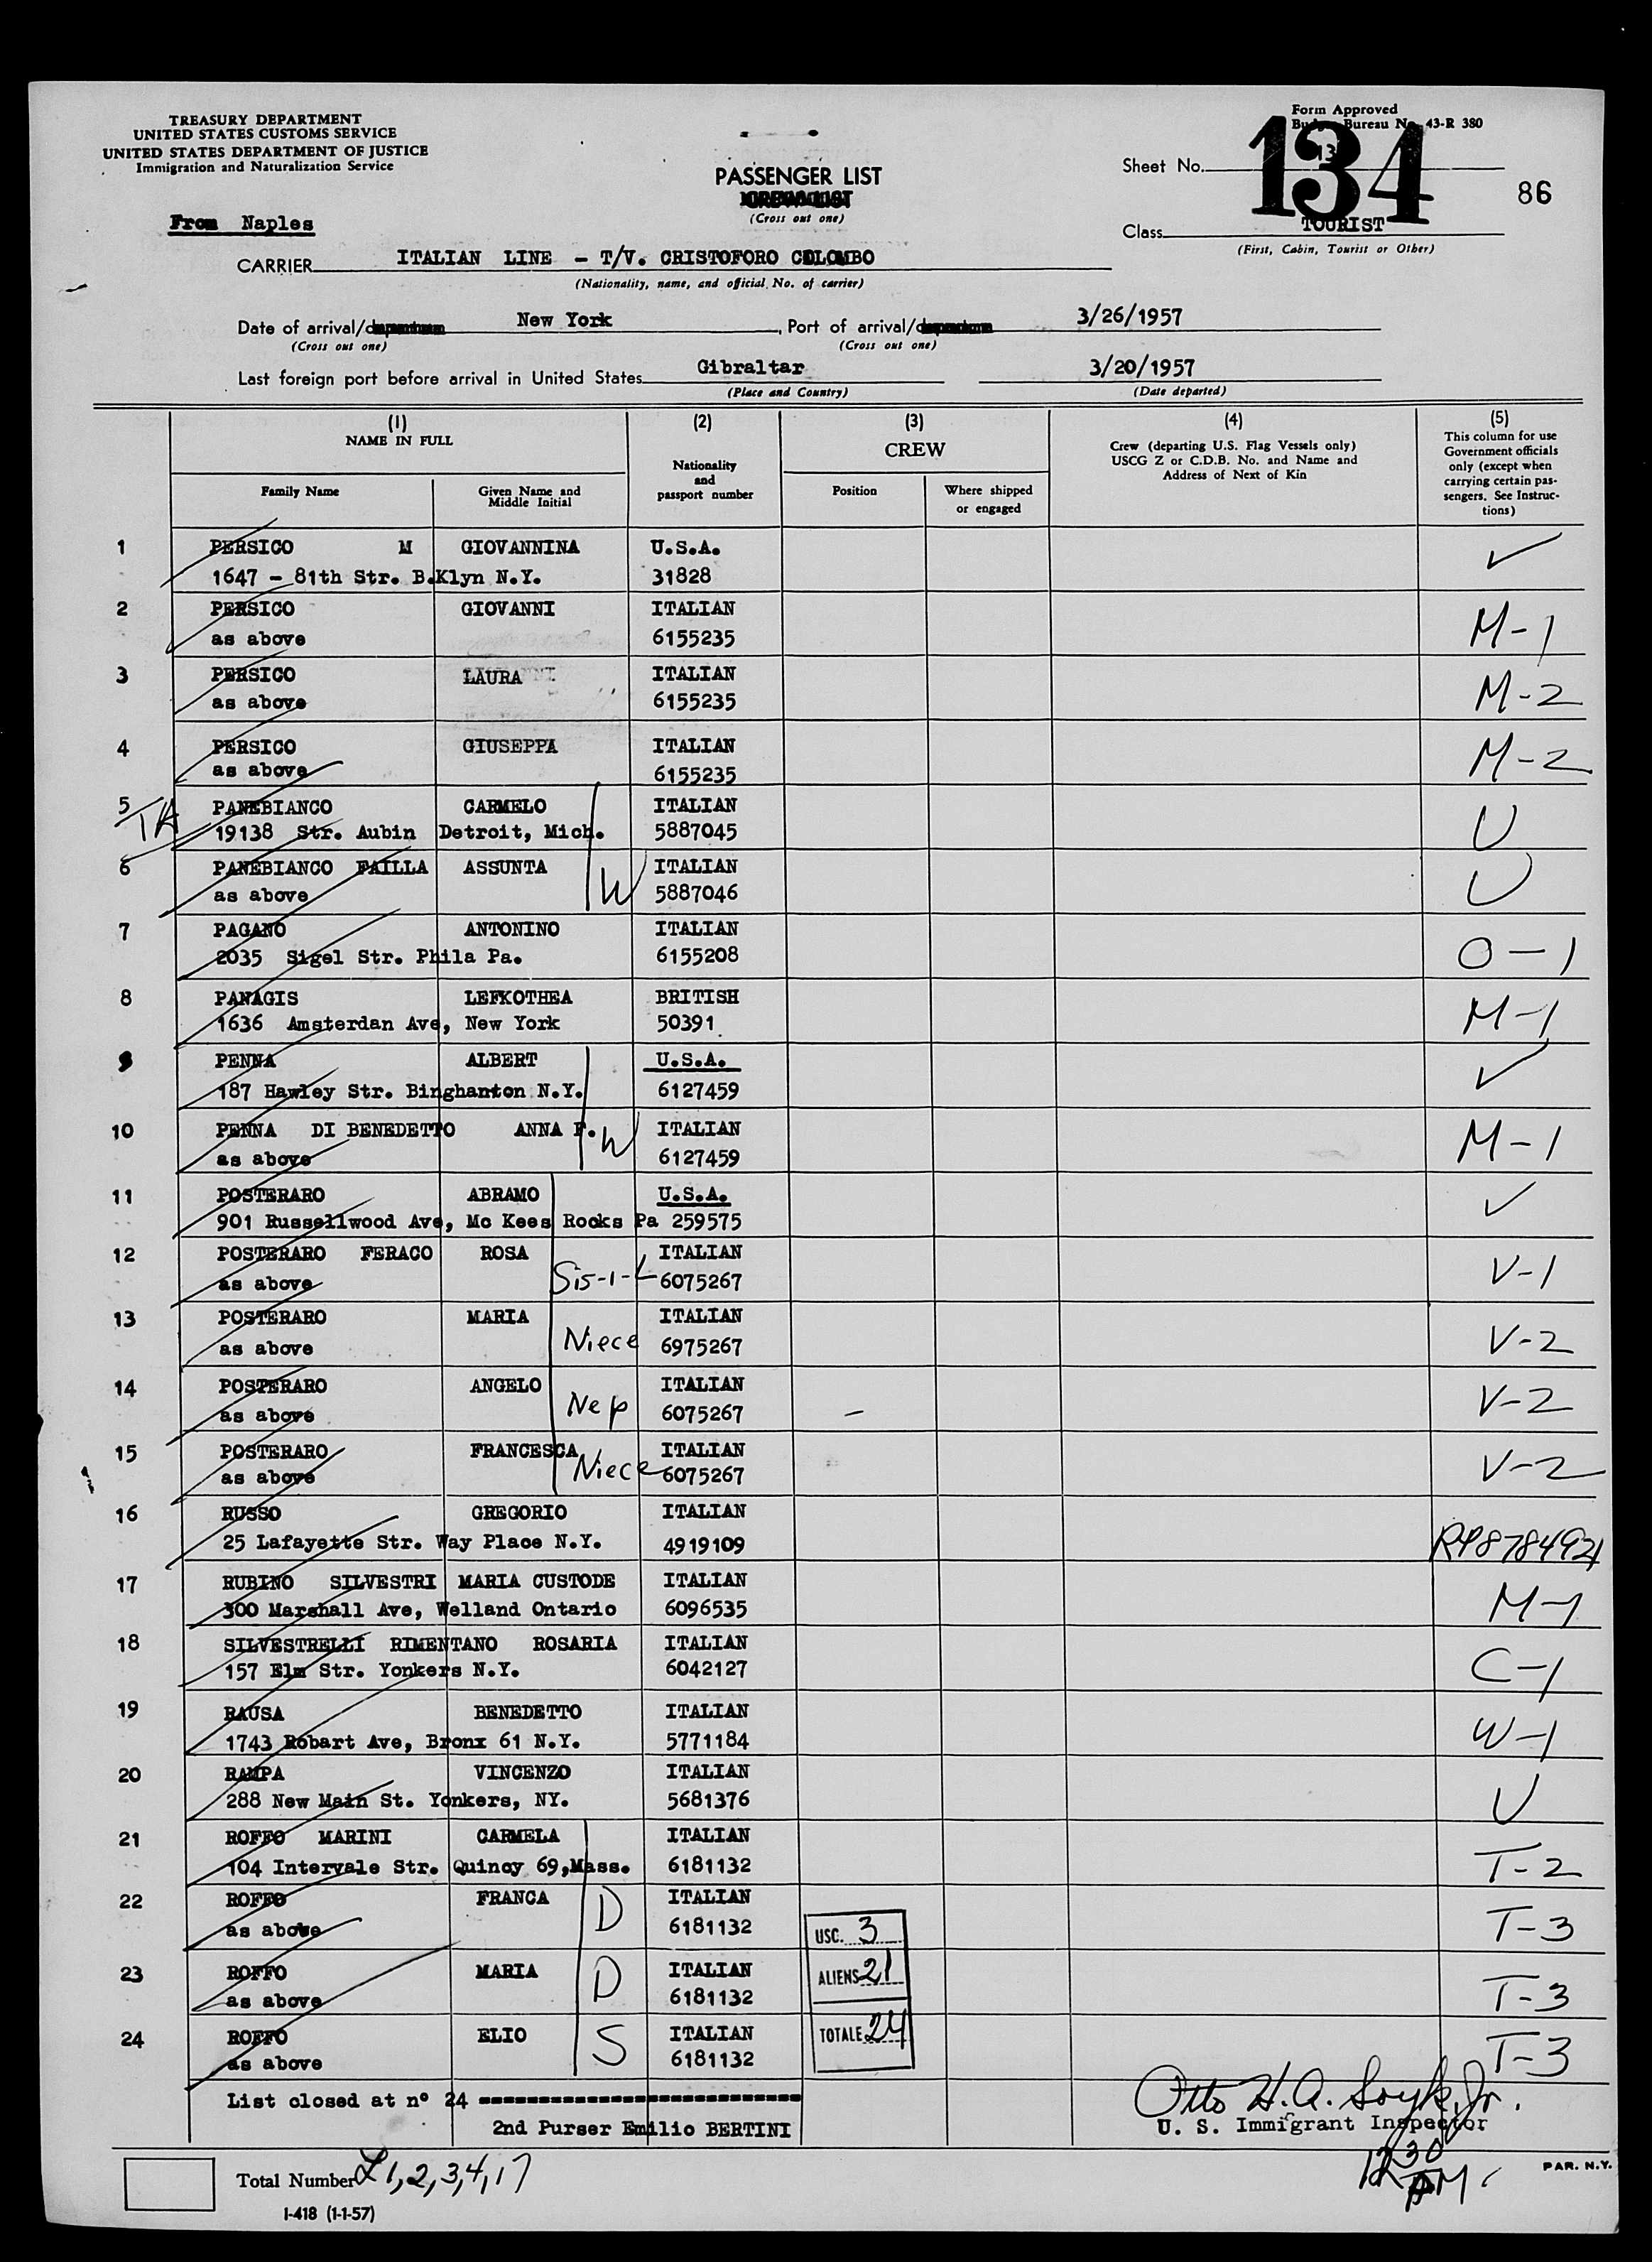 TREASURY DEPARTMENT
UNITED STATES CUSTOMS SERVICE
UNITED STATES DEPARTMENT OF JUSTICE
Immigration and Naturalization Service
Form Approved
Bureau No. 43-R 380
PASSENGER LIST
(Cross out one)
Sheet No. 13
134
86
From Naples
Class TOURIST
(First, Cabin, Tourist or Other)
CARRIER ITALIAN LINE - T/V. CRISTOFORO COLOMBO
(Nationality, name, and official No. of carrier)
Date of arrival/ New York , Port of arrival/ 3/26/1957
(Cross out one) (Cross out one)
Last foreign port before arrival in United States Gibraltar 3/20/1957
(Place and Country) (Date departed)
(1) (2) (3) (4) (5)
NAME IN FULL
Family Name
Given Name and Middle Initial
Nationality and passport number
CREW
Position
Where shipped or engaged
Crew (departing U.S. Flag Vessels only)
USCG Z or C.D.B. No. and Name and
Address of Next of Kin
This column for use
Government officials
only (except when
carrying certain pas-
sengers. See Instruc-
tions)
1 PERSICO M GIOVANNINA U.S.A. ✓
1647 - 81th Str. B.Klyn N.Y. 31828
2 PERSICO GIOVANNI ITALIAN M-1
as above 6155235
3 PERSICO LAURA ITALIAN M-2
as above 6155235
4 PERSICO GIUSEPPA ITALIAN M-2
as above 6155235
5 PANEBIANCO CARMELO ITALIAN U
TA 19138 Str. Aubin Detroit, Mich. 5887045
6 PANEBIANCO FAILLA ASSUNTA W ITALIAN U
as above 5887046
7 PAGANO ANTONINO ITALIAN O-1
2035 Sigel Str. Phila Pa. 6155208
8 PANAGIS LEFKOTHEA BRITISH M-1
1636 Amsterdan Ave, New York 50391
9 PENNA ALBERT U.S.A. ✓
187 Hawley Str. Binghanton N.Y. 6127459
10 PENNA DI BENEDETTO ANNA F. W ITALIAN M-1
as above 6127459
11 POSTERARO ABRAMO U.S.A. ✓
901 Russellwood Ave, Mc Kees Rocks Pa 259575
12 POSTERARO FERACO ROSA ITALIAN V-1
as above Sis-i-L 6075267
13 POSTERARO MARIA ITALIAN V-2
as above Niece 6975267
14 POSTERARO ANGELO ITALIAN V-2
as above Nep 6075267
15 POSTERARO FRANCESCA ITALIAN V-2
as above Niece 6075267
16 RUSSO GREGORIO ITALIAN
25 Lafayette Str. Way Place N.Y. 4919109 RP8784921
17 RUBINO SILVESTRI MARIA CUSTODE ITALIAN M-1
300 Marshall Ave, Welland Ontario 6096535
18 SILVESTRELLI RIMENTANO ROSARIA ITALIAN C-1
157 Elm Str. Yonkers N.Y. 6042127
19 RAUSA BENEDETTO ITALIAN W-1
1743 Robart Ave, Bronx 61 N.Y. 5771184
20 RAMPA VINCENZO ITALIAN U
288 New Main St. Yonkers, NY. 5681376
21 ROFFO MARINI CARMELA ITALIAN T-2
104 Intervale Str. Quincy 69,Mass. 6181132
22 ROFFO FRANCA D ITALIAN T-3
as above 6181132
USC. 3
23 ROFFO MARIA D ITALIAN T-3
as above 6181132
ALIENS 21
24 ROFFO ELIO S ITALIAN T-3
as above 6181132
TOTALE 24
List closed at n° 24
2nd Purser Emilio BERTINI
Otto H.A. Soyk, Jr.
U. S. Immigrant Inspector
1230
PM
PAR. N.Y.
Total Number L 1,2,3,4,17
I-418 (1-1-57)